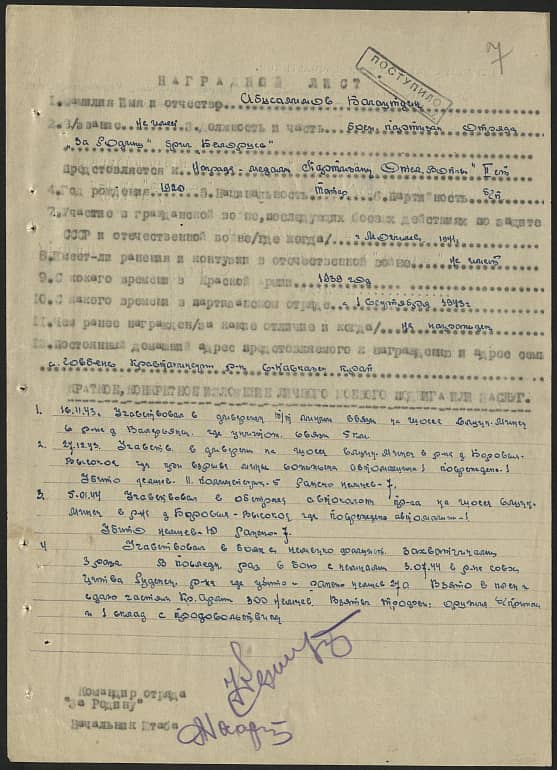 7
ПОСТУПИЛО
НАГРАДНОЙ ЛИСТ
1. Фамилия Имя и отчество Абисалимов
2. В/звание не имеет 3. Должность и часть бреи. партизан отряда
"За Родину" бриг. Беларусь
Представляется к награде - медали Партизану Отеч. Войны II ст
4. Год рождения 1920 5. Национальность татар 6. Партийность б/п
7. Участие в гражданской войне, последующих боевых действиях по защите
СССР и отечественной войне/где когда/ г. 1941
8. Имеет-ли ранения и контузии в отечественной войне не имеет
9. С какого времени в Красной Армии 1939 год
10. С какого времени в партизанском отряде с 1 Сентября 1943г
11. Чем ранее награжден/за какие отличие и когда/ не награжден
12. Постоянный домашний адрес представляемого к награждению и адрес семьи
р-н край
КРАТКОЕ, КОНКРЕТНОЕ ИЗЛОЖЕНИЕ ЛИЧНОГО БОЕВОГО ПОДВИГА ИЛИ ЗАСЛУГ.
1. 16.11.43. Участвовал в диверсии линии связи на шоссе Слуцк-Минск
в р-не д. Валерьяны где уничтож. связи 5 км.
2. 27.12.43. Участв. в диверсии на шоссе Слуцк-Минск в р-не д Боровая-
Высокое где при взрыве мины автомашин-1 повреждено-1
Убито немцев 11. полицейск.-5 Ранено немцев-7.
3. 5.01.44 Участвовал в обстреле автоколон пр-ка на шоссе Слуцк-
Минск в р-не д Боровая-Высокое где повреждено автомашин-1
Убито немцев-10 Ранено-7.
4 Участвовал в боях с немецко
3 раза. В последн. раз в бою с немцами 3.07.44 в р-не совх
р-на где убито и ранено немцев 27 Взято в плен и
сдано частям Кр. Арм 300 немцев. Взяты трофеи: оружие
и 1 склад с продовольствием
Командир отряда
"За Родину"
Начальник Штаба